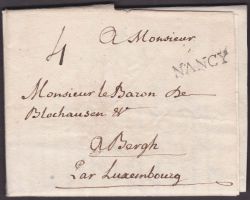 4
A Monsieur
NANCY
Monsieur le Baron De
Blochausen &
A Bergh
Par Luxembourg